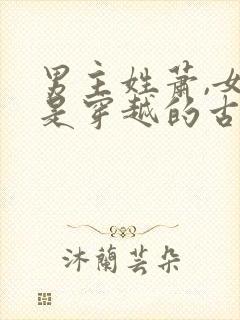 男主姓萧,女
是穿越的古
沐蘭芸朵